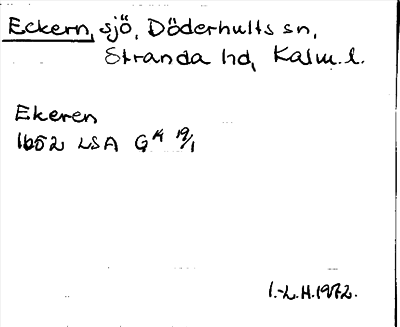 Eckern, sjö, Döderhults sn,
Stranda hd, Kalm. l.
Ekeren
1652 LSA G^K 19/1
I.-L.H. 1972.